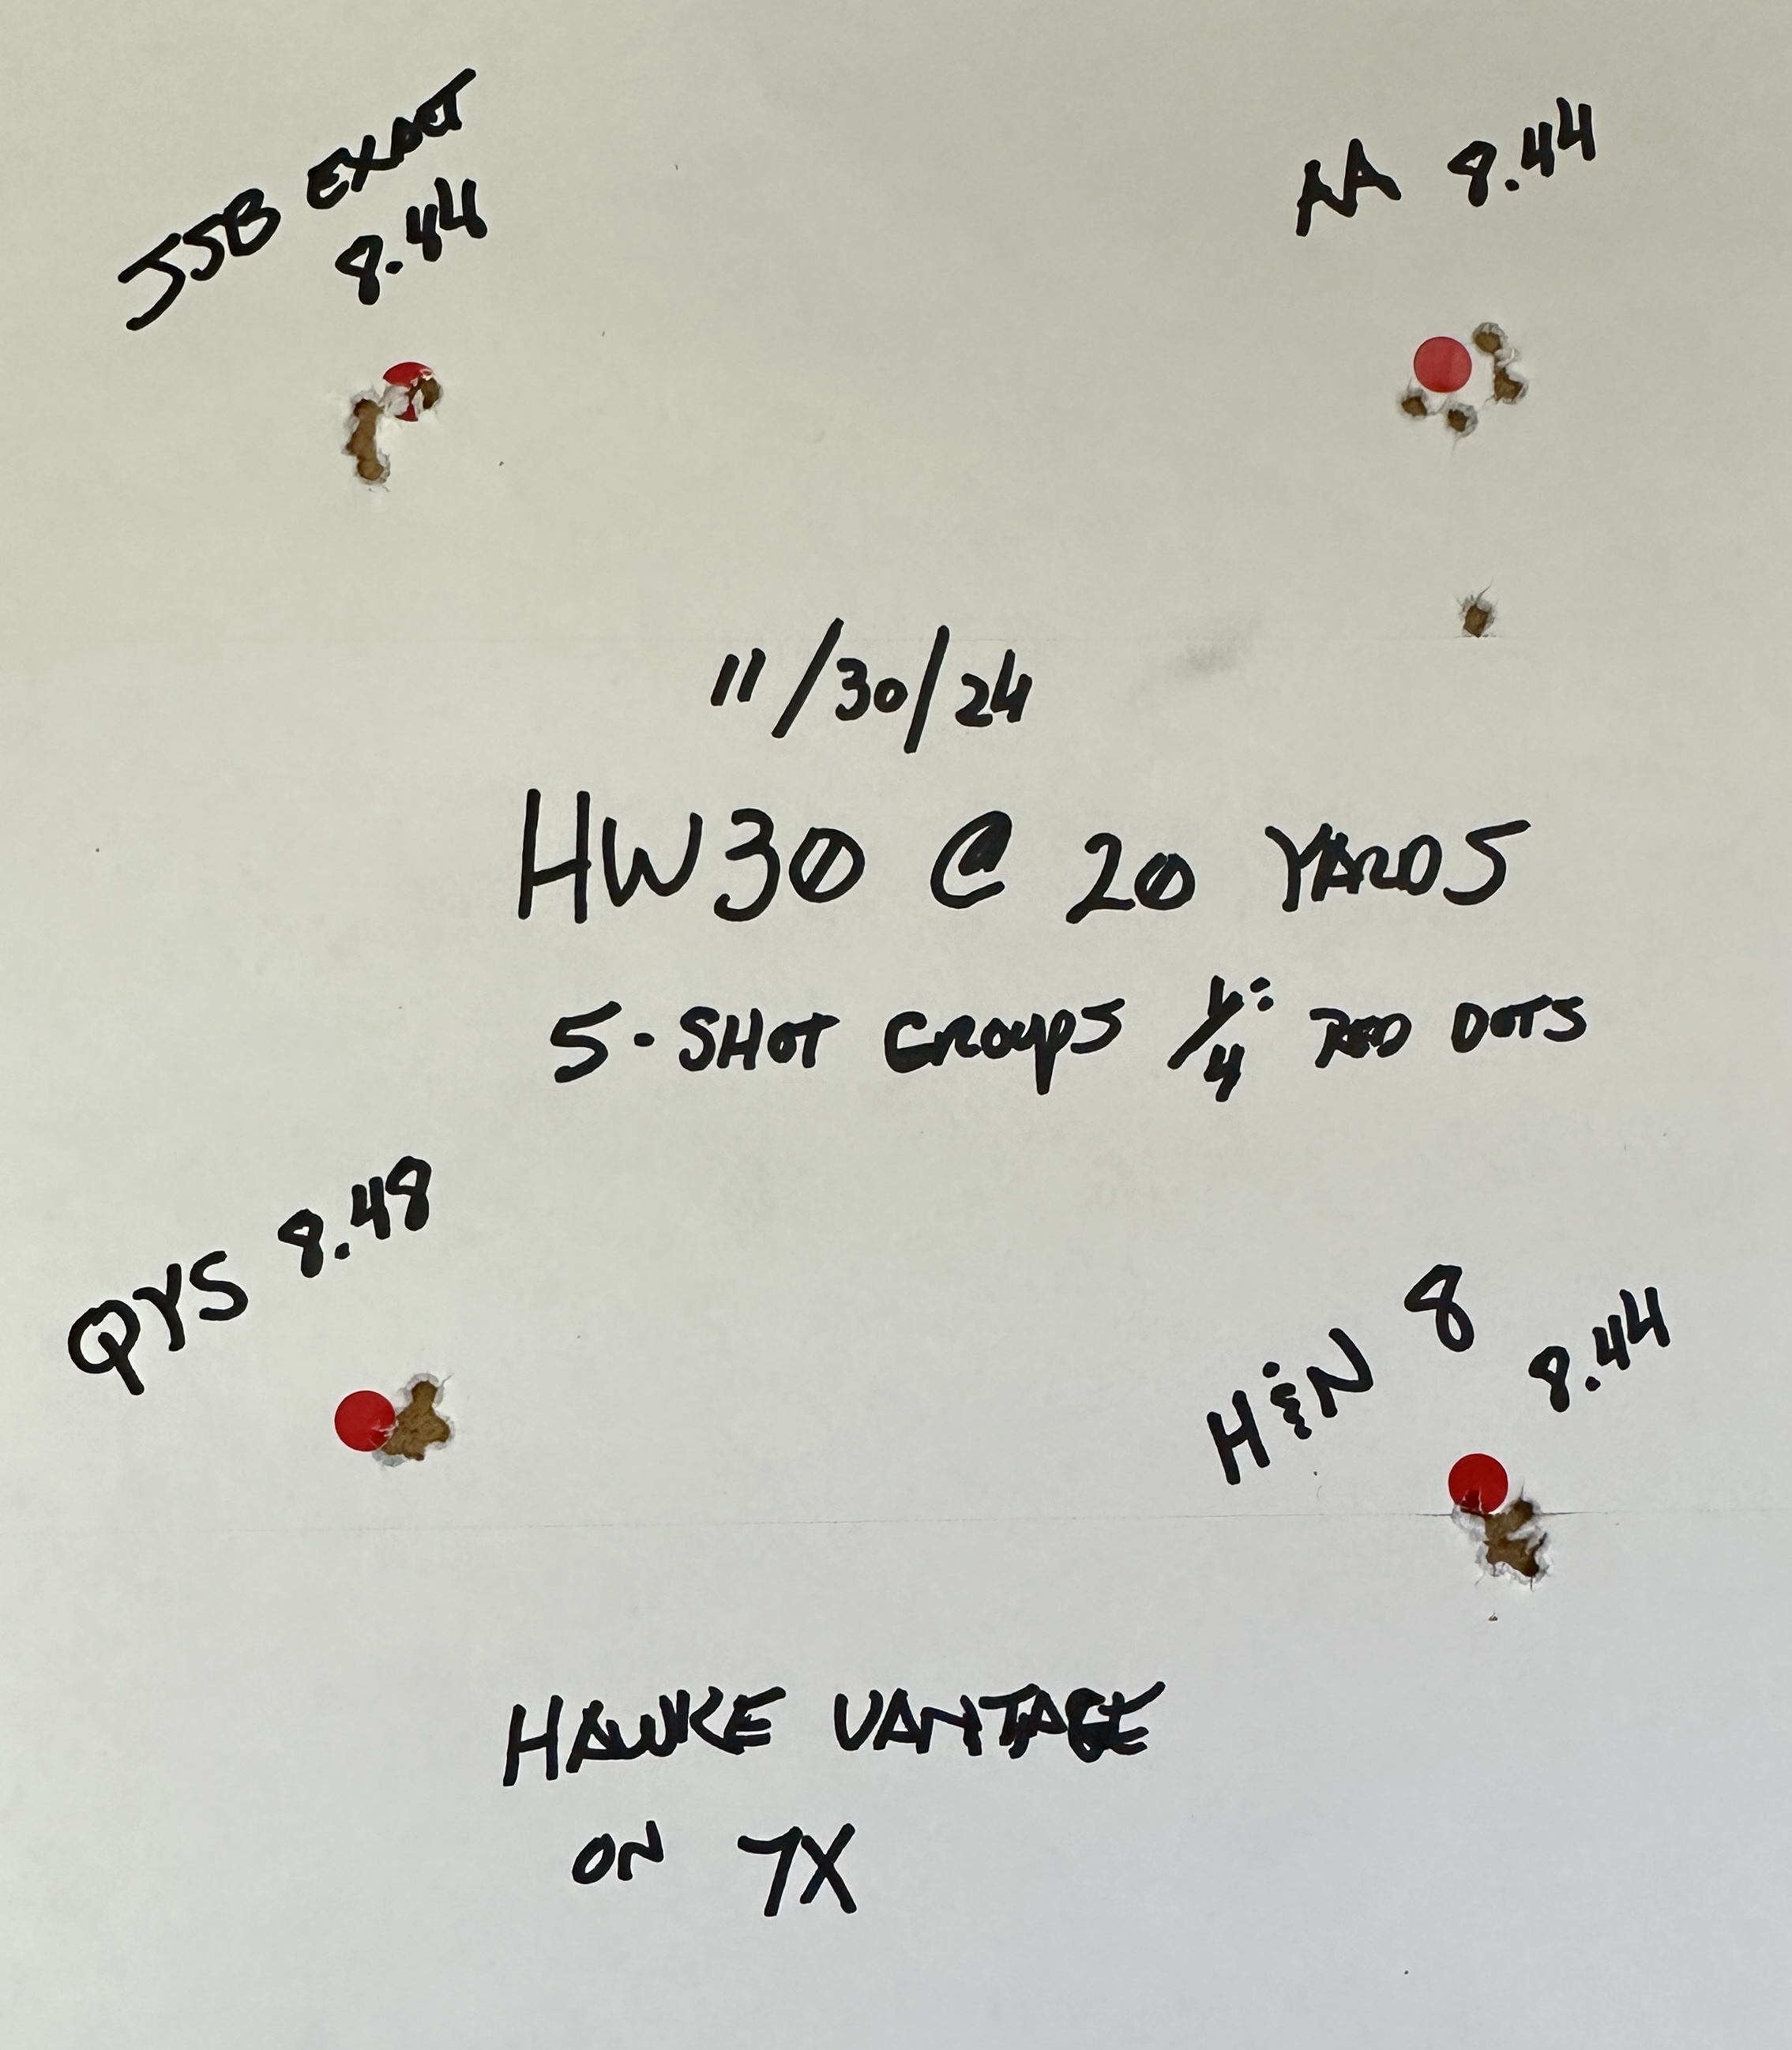 JSB EXACT
8.44
AA 8.44
11/30/24
HW30 @ 20 YARDS
5-SHOT GROUPS 1/4" RED DOTS
QYS 8.48
H&N 8
8.44
HAWKE VANTAGE
ON 7X